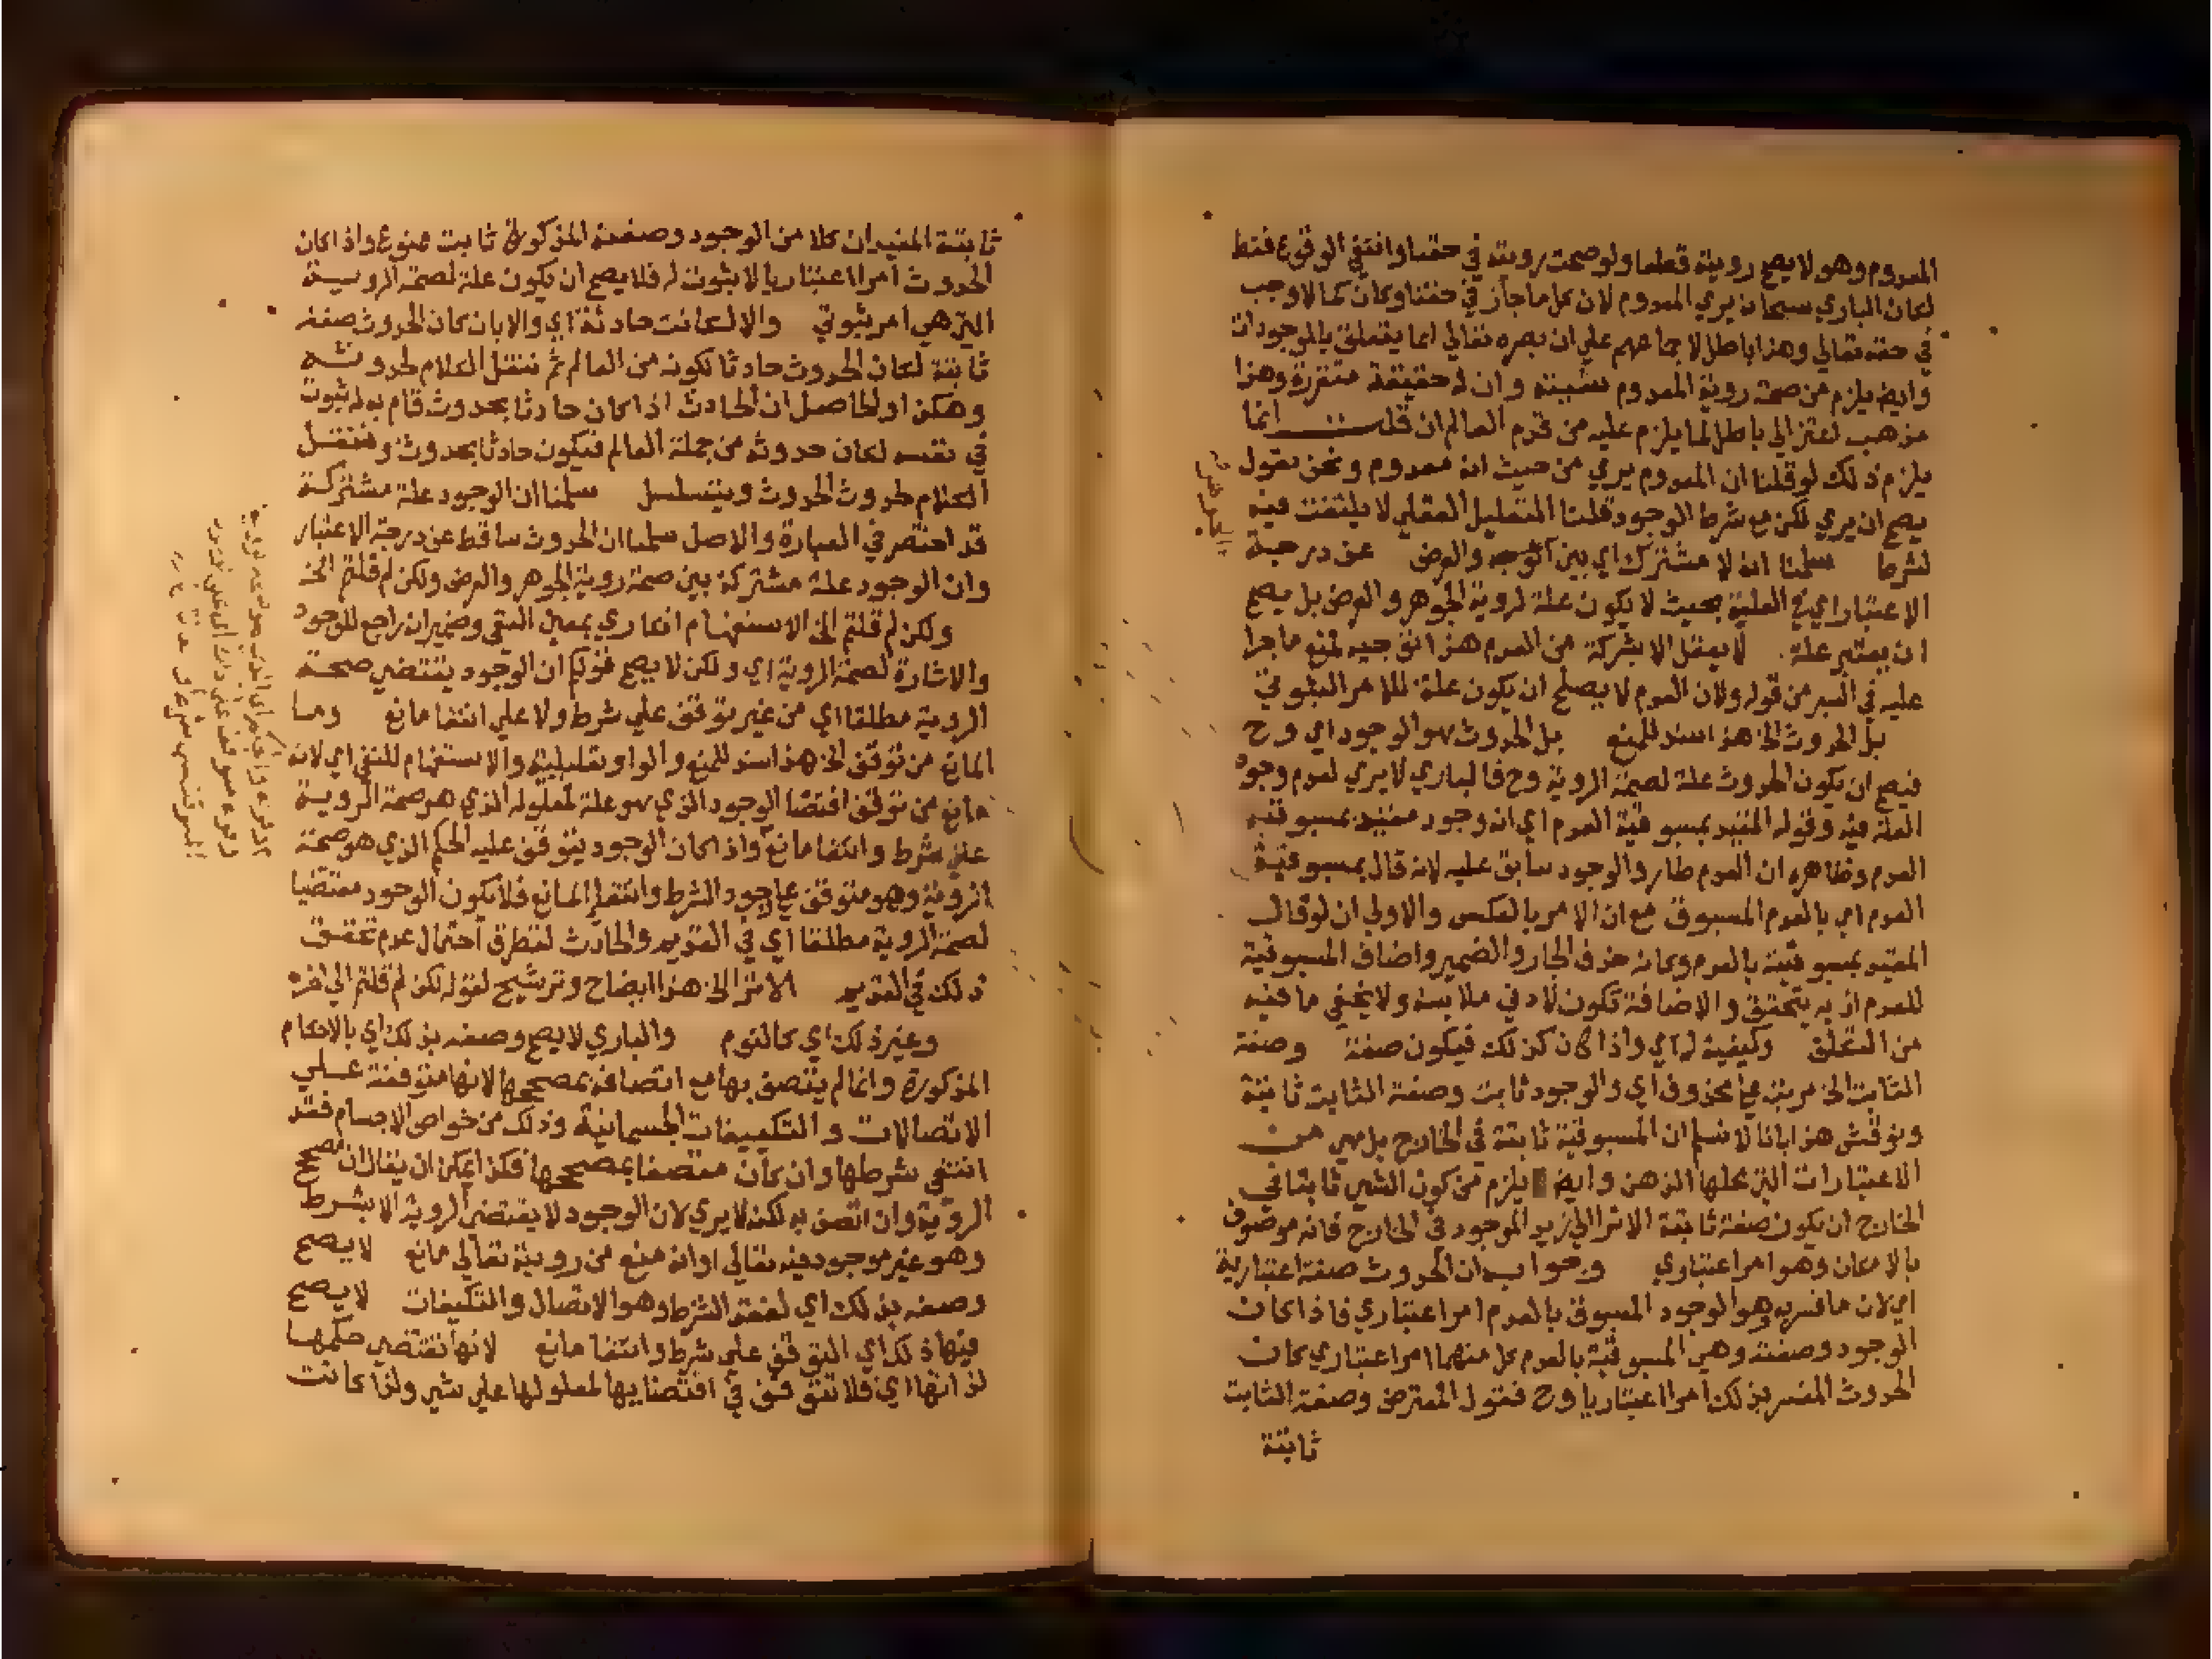 المعدوم وهو لا يصح رويته قطعا ولو صحت رويته في حقنا وانتفي الوقوع فقط
لكان الباري سبحانه يري المعدوم لان كل ما جاز في حقنا وكان كمالا وجب
في حقه تعالي وهذا باطل لاجماعهم علي ان بصره تعالي انما يتعلق بالموجودات
وايض يلزم من صحة روية المعدوم شييته وان له حقيقة متقررة وهذا
مذهب اعتزالي باطل لما يلزم عليه من قدم العالم ان قلت انما
يلزم ذلك لو قلنا ان المعدوم يري من حيث انه معدوم ونحن نقول
يصح ان يري لكن مع شرط الوجود قلنا التعليل العقلي لا يلتفت فيه
لشرط سلمنا انه لا مشترك اي بين الجوهر والعرض عن درجة
الاعتبار اي في العلية بحيث لا يكون علة لروية الجوهر والعرض بل يصح
ان يعتبر علة لا يعقل الا بشركة من العدم هذا توجيه لمنع ما جرا
عليه في السبر من قوله ولان العدم لا يصلح ان يكون علة للامر الثبوتي
بل الحدوث الخ هذا سند للمنع بل الحدوث هو الوجود اي وح
فيصح ان يكون الحدوث علة لصحة الروية وح فالباري لا يري لعدم وجود
العلة فيه وقوله المقيد بمسبوقية العدم اي انه وجود مقيد بمسبوقية
العدم وظاهره ان العدم طار والوجود سابق عليه لانه قال بمسبوقية
العدم اي بالعدم المسبوق مع ان الامر بالعكس والاولي ان لو قال
المقيد بمسبوقيته بالعدم وكانه حذف الجار والضمير واضاف المسبوقية
للعدم اذ به يتحقق والاضافة تكون لادني ملابسة ولا يخفي ما فيه
من التعلق وكيفية له اي واذا كان كذلك فيكون صفة وصفة
الثابت الخ مرتبة علي محذوف اي والوجود ثابت وصفة الثابت ثابتة
ونوقش هذا بانا لا نسلم ان المسبوقية ثابتة في الخارج بل هي من
الاعتبارات التي محلها الذهن وايض يلزم من كون الشي ثابتا في
الخارج ان يكون صفته ثابتة الا ترا الي زيد الموجود في الخارج فانه موصوف
بالامكان وهو امر اعتباري وجوابه ان الحدوث صفة اعتبارية
اي لان ما فسر به وهو الوجود المسبوق بالعدم امر اعتباري فاذا كان
الوجود وصفته وهي المسبوقية بالعدم كل منهما امر اعتباري كان
الحدوث المفسر بذلك امرا اعتباريا وح فقول المعترض وصفة الثابت
ثابتة
ثابتة المفيد ان كلا من الوجود وصفته المذكورة ثابت ممنوع واذا كان
الحدوث امرا اعتباريا لا ثبوت له فلا يصح ان يكون علة لصحة الروية
التي هي امر ثبوتي والا لكانت حادثة اي والا بان كان الحدوث صفة
ثابتة لكان الحدوث حادثا لكونه من العالم ثم ننقل الكلام لحدوثه
وهكذا والحاصل ان الحادث اذا كان حادثا بحدوث قام به له ثبوت
في نفسه لكان حدوثه من جملة العالم فيكون حادثا بحدوث وننقل
الكلام لحدوث الحدوث ويتسلسل سلمنا ان الوجود علة مشتركة
قد اختصر في العبارة والاصل سلمنا ان الحدوث ساقط عن درجة الاعتبار
وان الوجود علة مشتركة بين صحة روية الجوهر والعرض ولكن لم قلتم الخ
ولكن لم قلتم الخ الاستفهام انكاري بمعني النفي وضمير انه راجع للوجود
والاشارة لصحة الروية اي ولكن لا يصح قولكم ان الوجود يقتضي صحة
الروية مطلقا اي من غير توقف علي شرط ولا علي انتفا مانع وما
المانع من توقف الخ هذا سند للمنع والواو تعليلية والاستفهام للنفي اي لانه لا
مانع من توقف اقتضا الوجود الذي هو علة لمعلوله الذي هو صحة الروية
علي شرط وانتفا مانع واذا كان الوجود يتوقف عليه الحكم الذي هو صحة
الروية وهو متوقف علي وجود الشرط وانتفا المانع فلا يكون الوجود مقتضيا
لصحة الروية مطلقا اي في القديم والحادث لتطرق احتمال عدم تحقق
ذلك في القديم الا ترا الخ هذا ايضاح وترشيح لقوله لكن لم قلتم الي اخره
وغير ذلك اي كالنوم والباري لا يصح وصفه بذلك اي بالاحكام
المذكورة وانما لم يتصف بها مع اتصافه بمصححها لانها متوقفة علي
الاتصالات والتكييفات الجسمانية وذلك من خواص الاجسام فقد
انتفي شرطها وان كان متصفا بمصححها فكذا يمكن ان يقال ان مصحح
الروية وان اتصف به لكنه لا يري لان الوجود لا يقتضي الروية الا بشرط
وهو غير موجود فيه تعالي او انه منع من رويته تعالي مانع لا يصح
وصفه بذلك اي لفقد الشرط وهو الاتصال والتكيفات لا يصح
فيها ذلك اي التوقف علي شرط وانتفا مانع لانها تقتضي حكمها
لذاتها اي فلا تتوقف في اقتضاييها لمعلولها علي شي ولذا كانت